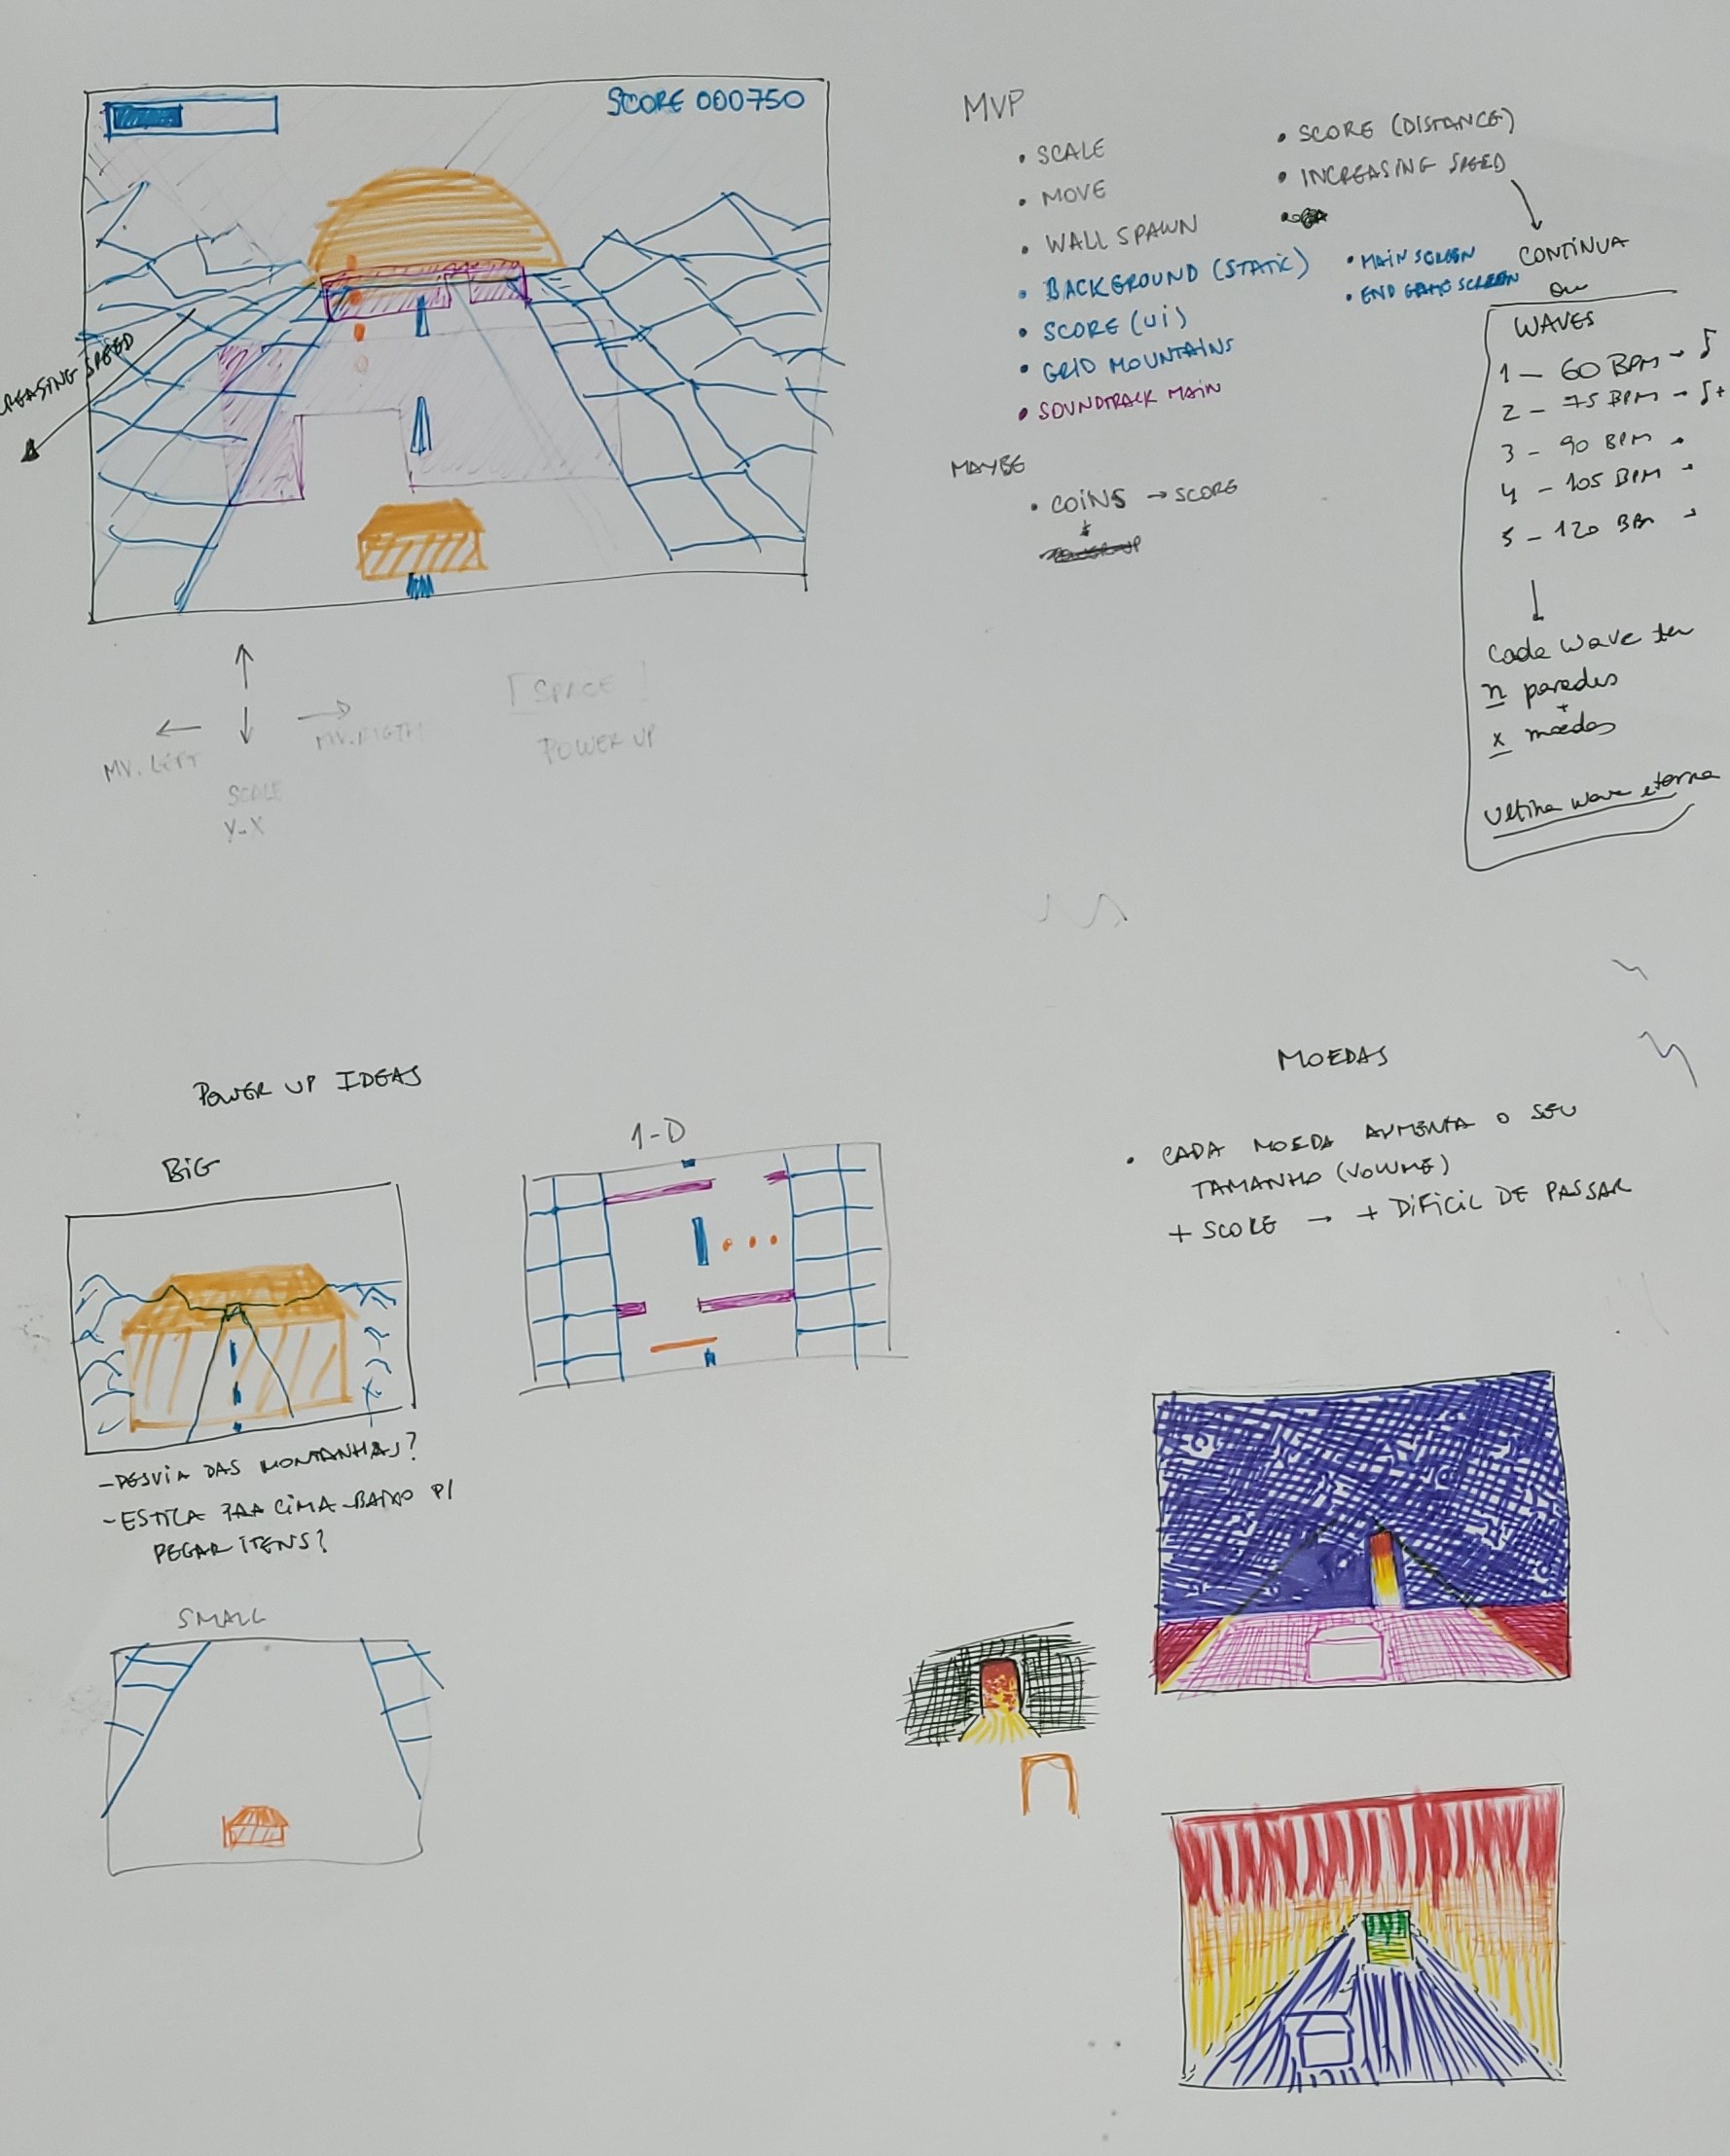 SCORE 000750
CREASING SPEED
MV. LEFT
MV. RIGTH
SCALE
Y-X
[SPACE]
POWER UP
MVP
• SCALE
• MOVE
• WALL SPAWN
• BACKGROUND (STATIC)
• SCORE (Ui)
• GRID MOUNTAINS
• SOUNDTRACK MAIN
• SCORE (DISTANCE)
• INCREASING SPEED
• MAIN SCREEN
• END GAME SCREEN
CONTINUA
ou
WAVES
1 - 60 BPM →
2 - 75 BPM →
3 - 90 BPM
4 - 105 BPM
5 - 120 BPM
Cada wave tem
n paredes
+
x moedas
Ultima wave eterna
MAYBE
• COINS → SCORE
POWER UP IDEAS
BIG
- DESVIA DAS MONTANHAS?
- ESTICA PRA CIMA-BAIXO P/
PEGAR ITENS?
1-D
SMALL
MOEDAS
• CADA MOEDA AUMENTA O SEU
TAMANHO (VOLUME)
+ SCORE → + DIFICIL DE PASSAR